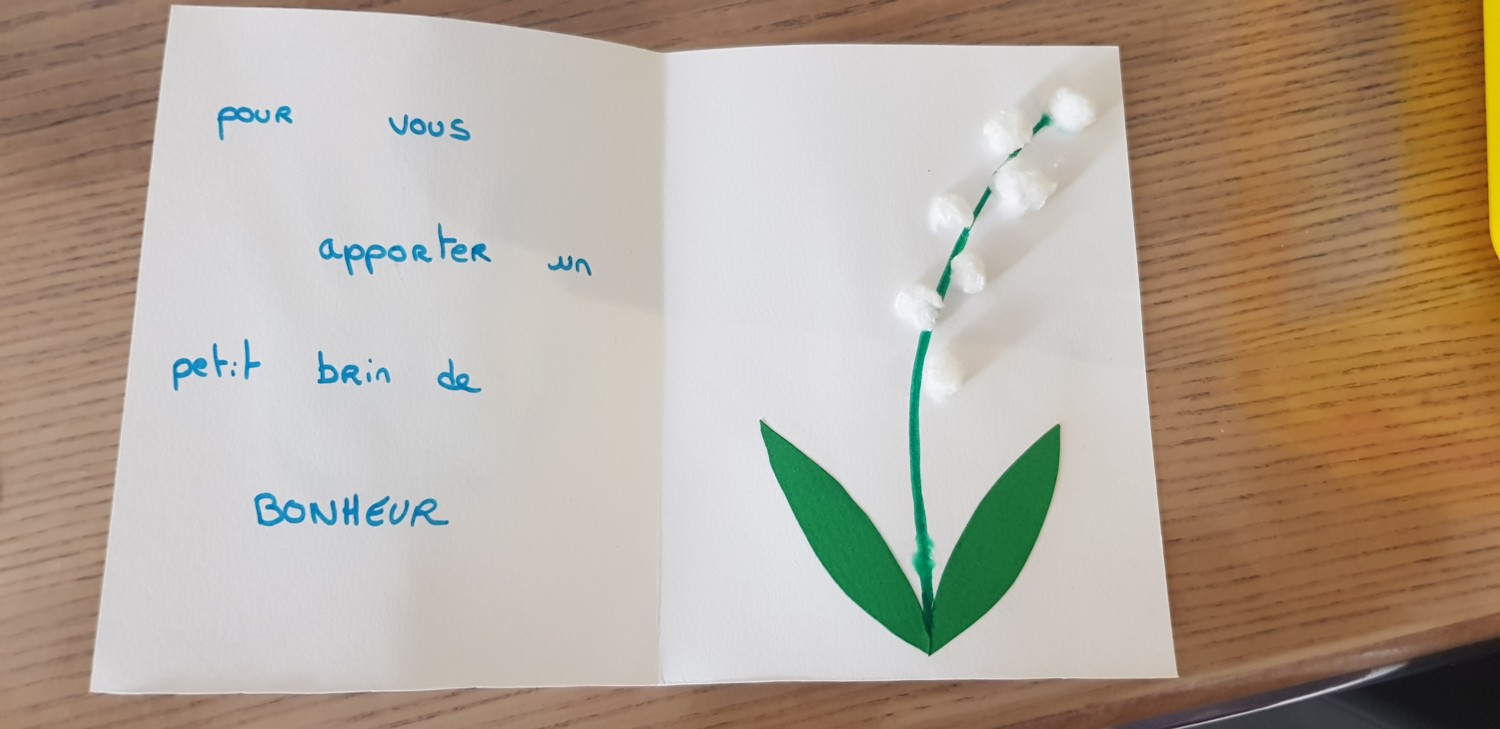 pour vous
apporter un
petit brin de
BONHEUR